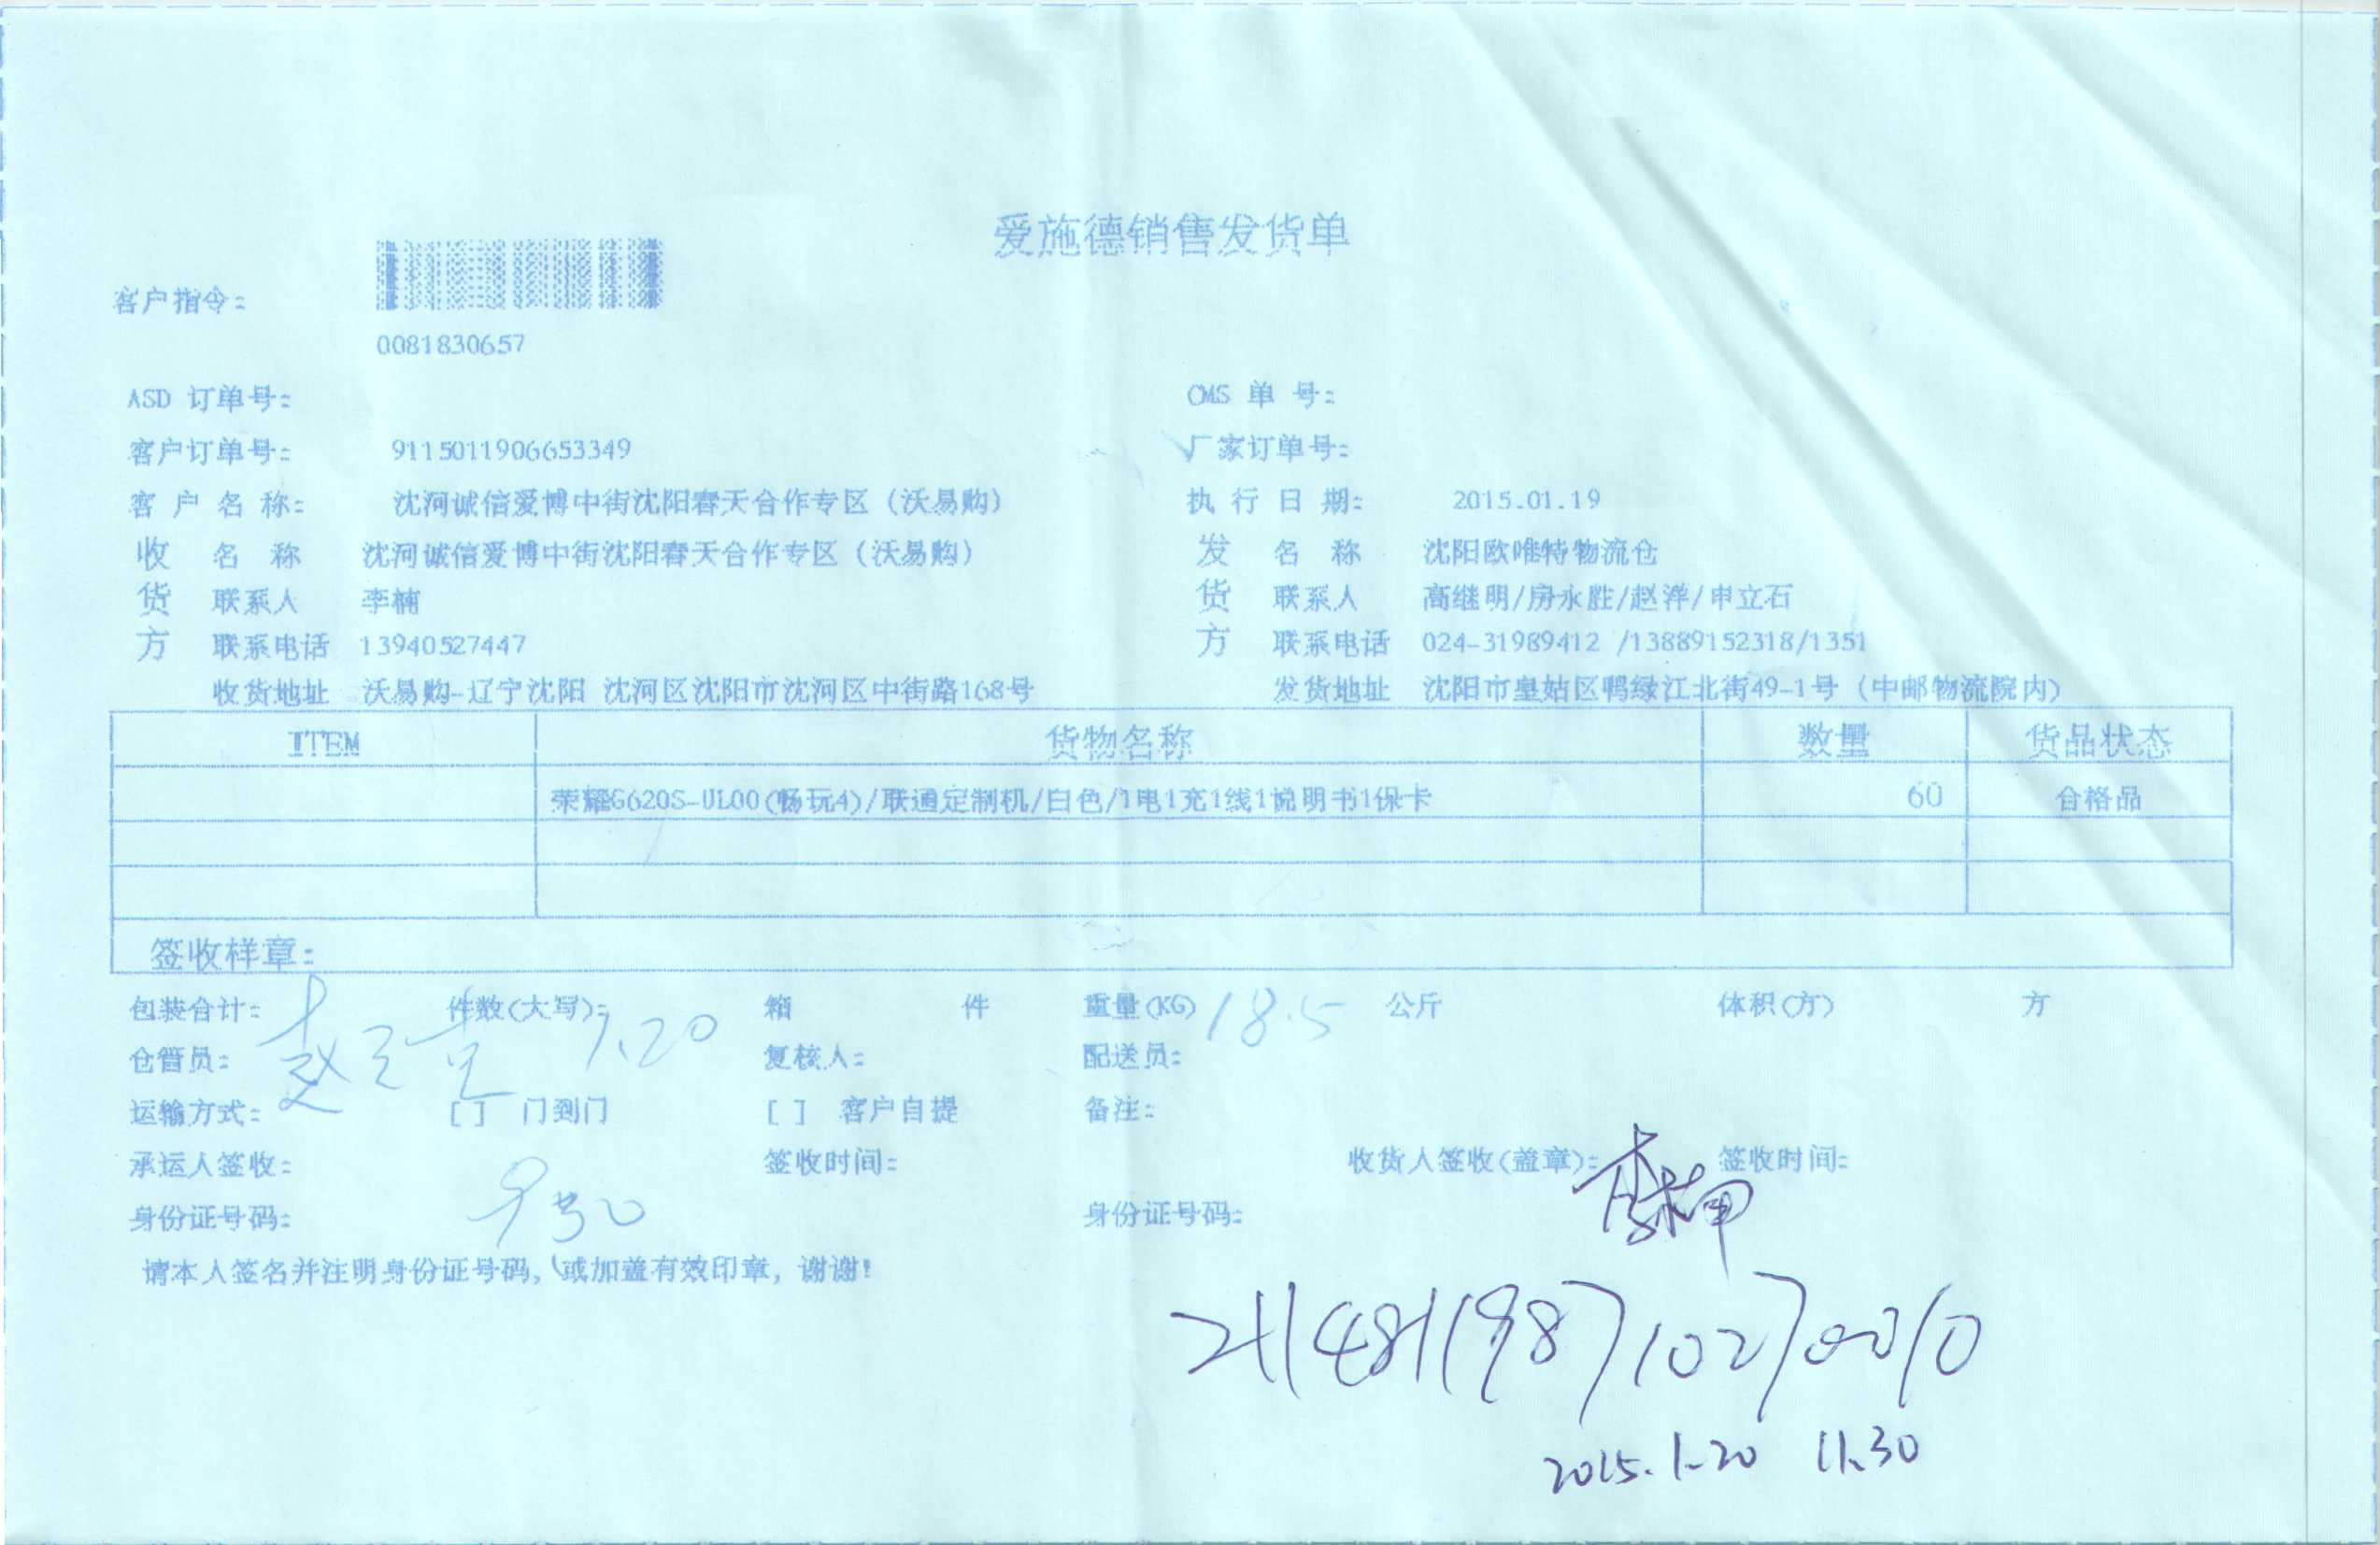 爱施德销售发货单
客户指令：
0081830657
ASD 订单号： CMS 单 号：
客户订单号： 9115011906653349 厂家订单号：
客 户 名 称： 沈河诚信爱博中街沈阳春天合作专区（沃易购） 执 行 日 期： 2015.01.19
收 名 称 沈河诚信爱博中街沈阳春天合作专区（沃易购） 发 名 称 沈阳欧唯特物流仓
货 联系人 李楠 货 联系人 高继明/房永胜/赵洋/申立石
方 联系电话 13940527447 方 联系电话 024-31989412 /13889152318/1351
收货地址 沃易购-辽宁沈阳 沈河区沈阳市沈河区中街路168号 发货地址 沈阳市皇姑区鸭绿江北街49-1号（中邮物流院内）
ITEM 货物名称 数量 货品状态
荣耀G620S-UL00(畅玩4)/联通定制机/白色/1电1充1线1说明书1保卡 60 合格品
签收样章：
包装合计： 件数(大写)： 箱 件 重量(KG) 18.5 公斤 体积(方) 方
仓管员： 1.20 复核人： 配送员：
运输方式： [ ] 门到门 [ ] 客户自提 备注：
承运人签收： 签收时间： 收货人签收(盖章)： 李楠 签收时间：
身份证号码： 身份证号码：
请本人签名并注明身份证号码，或加盖有效印章，谢谢！
211481198710270010
2015.1.20 11.30